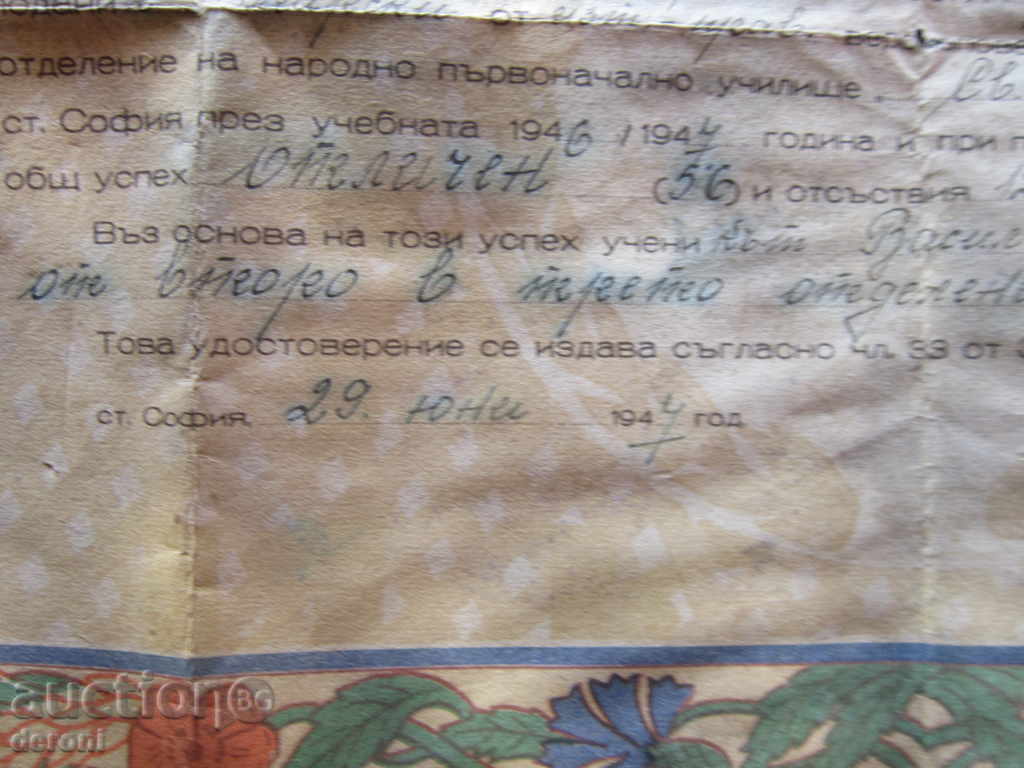 от
отделение на народно първоначално училище „ Св.
ст. София през учебната 1946/1947 година и при
общ успех Отличен (5·6) и отсъствия
Въз основа на този успех ученикът Васил
от второ в трето отделени
Това удостоверение се издава съгласно чл. 33 от
ст. София, 29. юни 1947 год.
auction BG
deroni